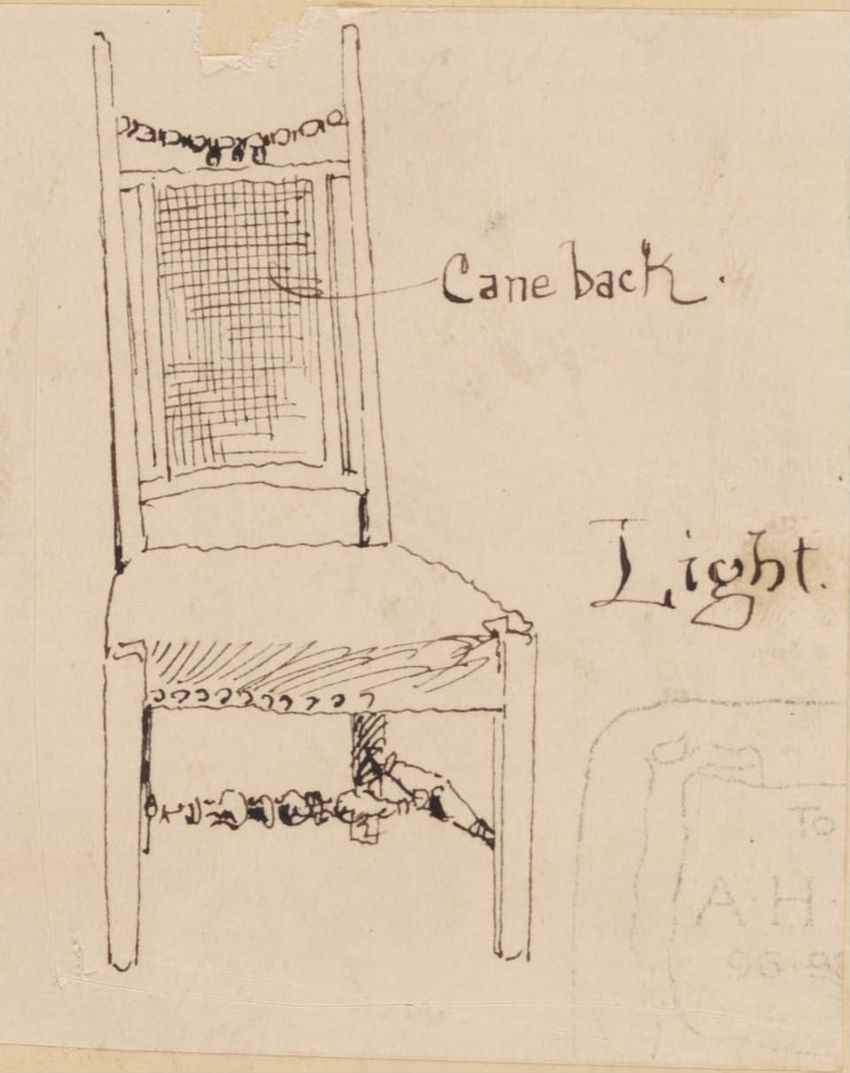 Cane back.
Light.
To
A·H·